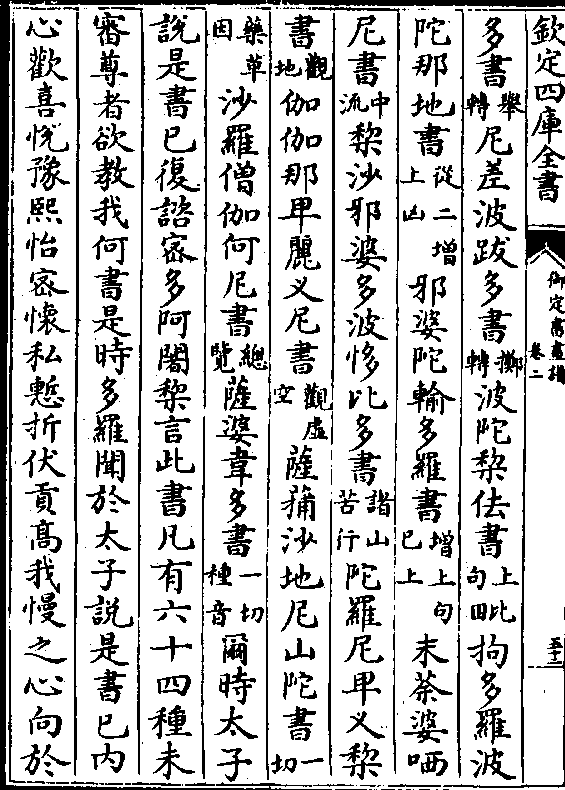 欽定四庫全書
御定書畫譜
卷二
五十二
多書舉轉尼差波跋多書擲轉波陀棃佉書上句此句囬拘多羅波
陀那地書從二增上㐫邪婆陀輸多羅書增上句已上末荼婆哂
尼書中流棃沙邪婆多波恀比多書諸山苦行陀羅尼甲义棃
書觀地伽伽那甲麗义尼書觀虛空薩蒱沙地尼山陀書一切
藥草因沙羅僧伽何尼書總覽薩婆韋多書一切種音爾時太子
說是書已復諮宻多阿闍棃言此書凡有六十四種未
審尊者欲教我何書是時多羅聞於太子說是書已内
心歡喜悅豫熙怡宻懷私慙折伏貢高我慢之心向於